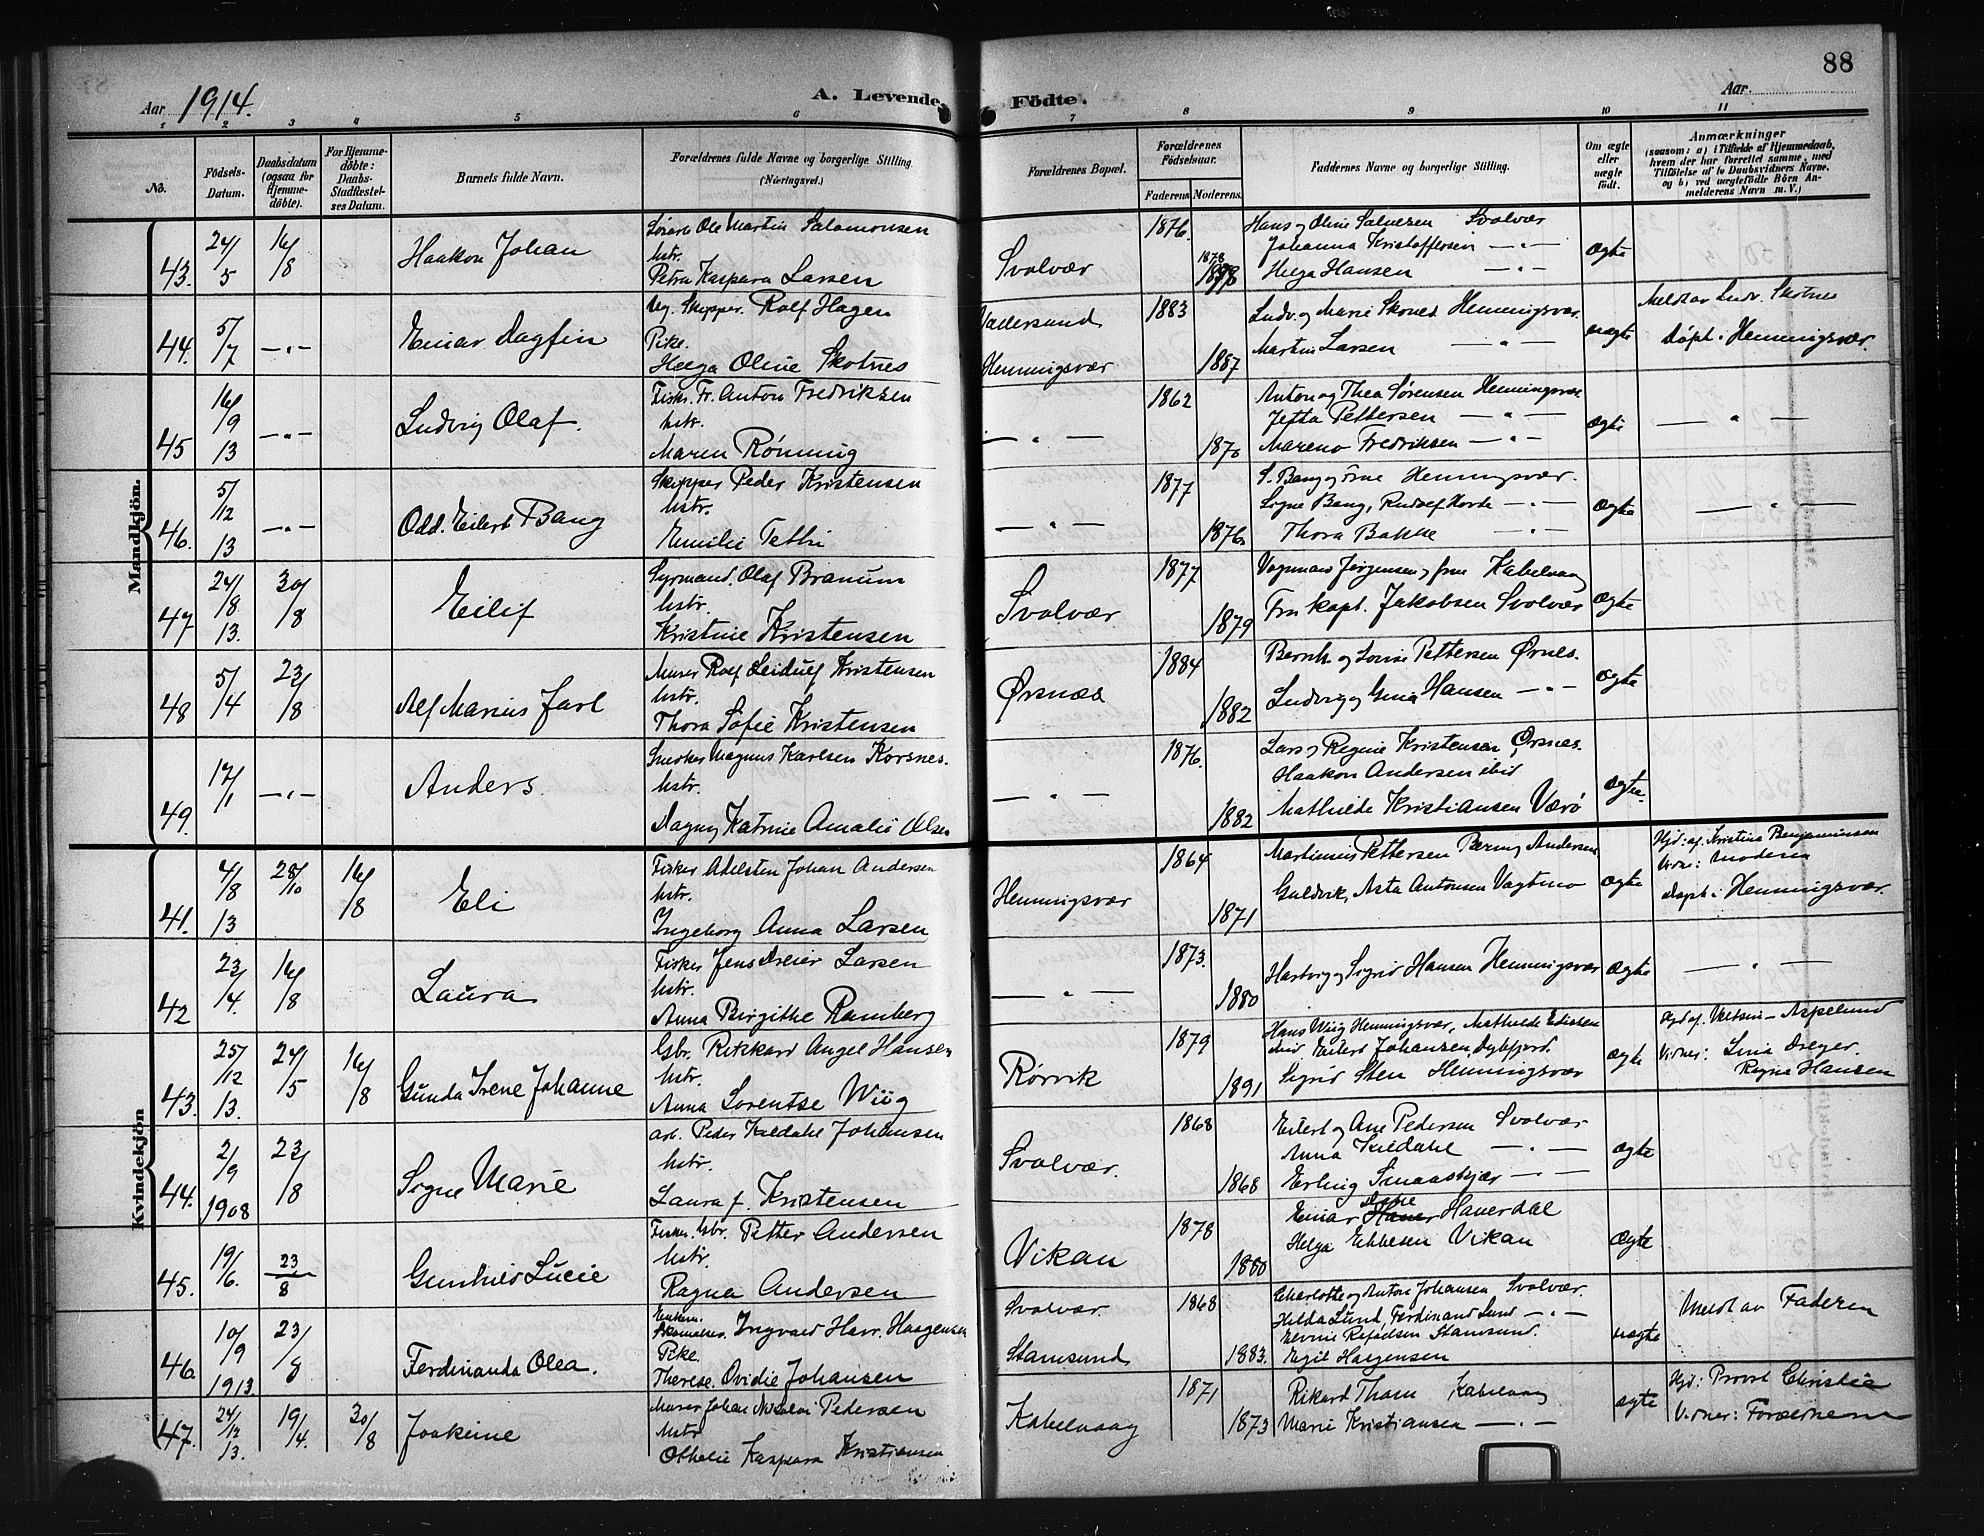 88
Aar 1914.
A. Levende Födte.
Aar
1 2 3 4 5 6 7 8 9 10 11
No.
Födsels-Datum.
Daabsdatum (ogsaa for Hjemmedöbte).
For Hjemmedöbte: Daabs-Stadfæstelses Datum.
Barnets fulde Navn.
Forældrenes fulde Navne og borgerlige Stilling. (Næringsvei.)
Forældrenes Bopæl.
Forældrenes Födselsaar.
Faderens. Moderens.
Faddernes Navne og borgerlige Stilling.
Om ægte eller uægte födt.
Anmærkninger
(saasom: a) i Tilfælde af Hjemmedaab, hvem der har forrettet samme, med Tilföielse af to Daabsvidners Navne, og b) ved uægtefödte Börn Anmelderens Navn m. V.)
Mandkjön.
43. 24/5 16/8 Haakon Johan
Ole Martin Salomonsen
hstr.
Petra Kaspara Larsen
Svolvær 1876. 1878
Hans og Oline Salvesen Svolvær
Johanna Kristoffersen — " —
Helga Hansen — " —
ægte
44. 5/7 — " — Einar Dagfin
Ug. Skipper. Rolf Hagen
Pike.
Helga Oline Skotnes
Henningsvær 1883 1887
Ludv. og Marie Skotnes Henningsvær.
Martin Larsen — " —
uægte
Meldt av Ludv. Skotnes
Døpt i Henningsvær.
45 16/9 13 — " — Ludvig Olaf.
Fisker. Fr. Anton Fredriksen
hstr.
Maren Rönning
— " — 1862 1870
Anton og Thea Sørensen Henningsvær
Jetta Pettersen — " —
Mareno Fredriksen — " —
ægte — " —
46. 5/12 13 — " — Odd. Eilert Bang
Skipper Peder Kristensen
hstr.
Emilie
— " — 1877 1876
S. Bang og frue Henningsvær.
Signe Bang, — " —
Thora Bakke — " —
ægte — " —
47 24/8 13. 30/8 Eilif
Styrmand. Olaf Branum
hstr.
Kristine Kristensen
Svolvær 1877 1879
Vognmand Jørgensen, frue Kabelvaag
Fru kapt. Jakobsen Svolvær
ægte
48 5/4 23/8 Alf Marius Jarl
Murer Rolf Leidulf Kristensen
hstr.
Thora Sofie Kristensen
Ørsnæs 1884 1882
Bernh. og Lovise Pettersen Ørsnes.
Ludvig og Gina Hansen — " —
ægte
49. 17/1 — " — Anders.
Snedker Magnus Karlsen Korsnes.
hstr.
Dagny Katrine Amalie Olsen
— " — 1876. 1882
Lars og Regine Kristensen Ørsnes.
Haakon Andersen ibid
Mathilde Kristiansen Værö
ægte.
Kvindekjön
41. 4/8 13 28/10 16/8 Eli
Fisker Adelsten Johan Andersen
hstr.
Ingeborg Anna Larsen
Henningsvær 1864 1871
Martinus Pettersen Berny Andersen
Guldvik, Asta Antonsen Vagtmo
ægte
Hjd: af. Kristine Benjaminsen
Vidner: Moderen
Døpt i Henningsvær.
42 23/4. 16/8 Laura
Fisker Jens Dreier Larsen
hstr.
Anna Birgithe Ramberg
— " — 1873. 1880
Hartvig og Sigrid Hansen Henningsvær
ægte — " —
43. 25/12 13. 24/5 16/8 Gunda Irene Johanne
Gbr. Rikkard Angel Hansen
hstr.
Anna Lorentse Wiig
Rörvik 1879 1891
Hans Wiig Henningsvær, Mathilde
ibid Eilert Johansen, Dybfjord.
Sigrid Sten Henningsvær
ægte
Hjd af. Aspelund
Vidner: Lina Dreyer.
Ragna Hansen
44. 2/9 1908 23/8 Signe Marie
Arb. Peder Kildahl Johansen
hstr.
Laura J. Kristensen
Svolvær. 1868 1868
Eilert og Ane Pedersen Svolvær
Anna Kildahl — " —
Erling — " —
ægte
45. 19/6. 23/8 Gunhild Lucie
Fisker. Gbr. Petter Andersen
hstr.
Ragna Andersen
Vikan 1878 1880
Einar Haverdal
Helga Ebbesen Vikan
ægte
46. 10/9 1913. 23/8 Ferdinanda Olea.
Enkem.
Ingvald Harr. Haagensen
Pike.
Therese. Ovidie Johansen
Svolvær
Stamsund 1868 1883.
Charlotte og Anton Johansen Svolvær.
Hilda Lund, Ferdinand Lund — " —
Stamsund.
Egil Haagensen
uægte
Meldt av Faderen
47. 24/12 13. 19/4. 30/8 Joakime
Murer Johan Nikolai Pedersen
hstr
Othelie Kaspara Kristiansen
Kabelvaag 1871 1873
Rikard Thom Kabelvaag
Marie Kristiansen — " —
ægte
Hjd: Provst Christie
Vidner: Forældrene